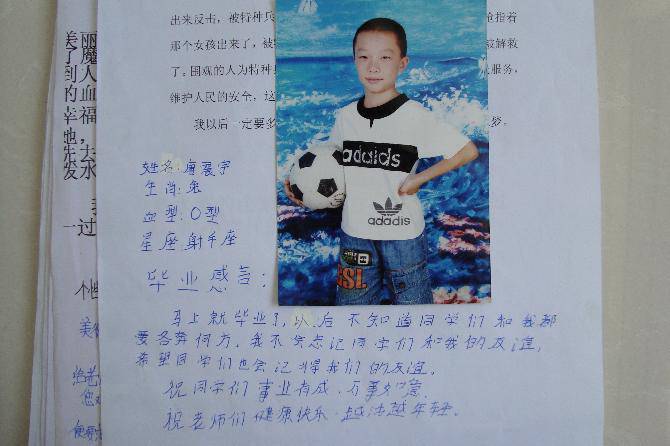 出来反击，被特种兵
枪指着
那个女孩出来了，被
被解救
了。围观的人为特种兵
服务，
维护人民的安全，这
我以后一定要多
梦。
丽魔人血福，去水
美了到的幸他先发
一过
个性
美
adaids
adadis
姓名:唐襄宇
生肖:兔
血型:O型
星座:射手座
毕业感言：
马上就毕业了，以后不知道同学们和我都
要各奔何方，我不会忘记同学们和我的友谊，
希望同学们也会记得我们的友谊。
祝同学们事业有成，万事如意。
祝老师们健康快乐，越活越年轻。